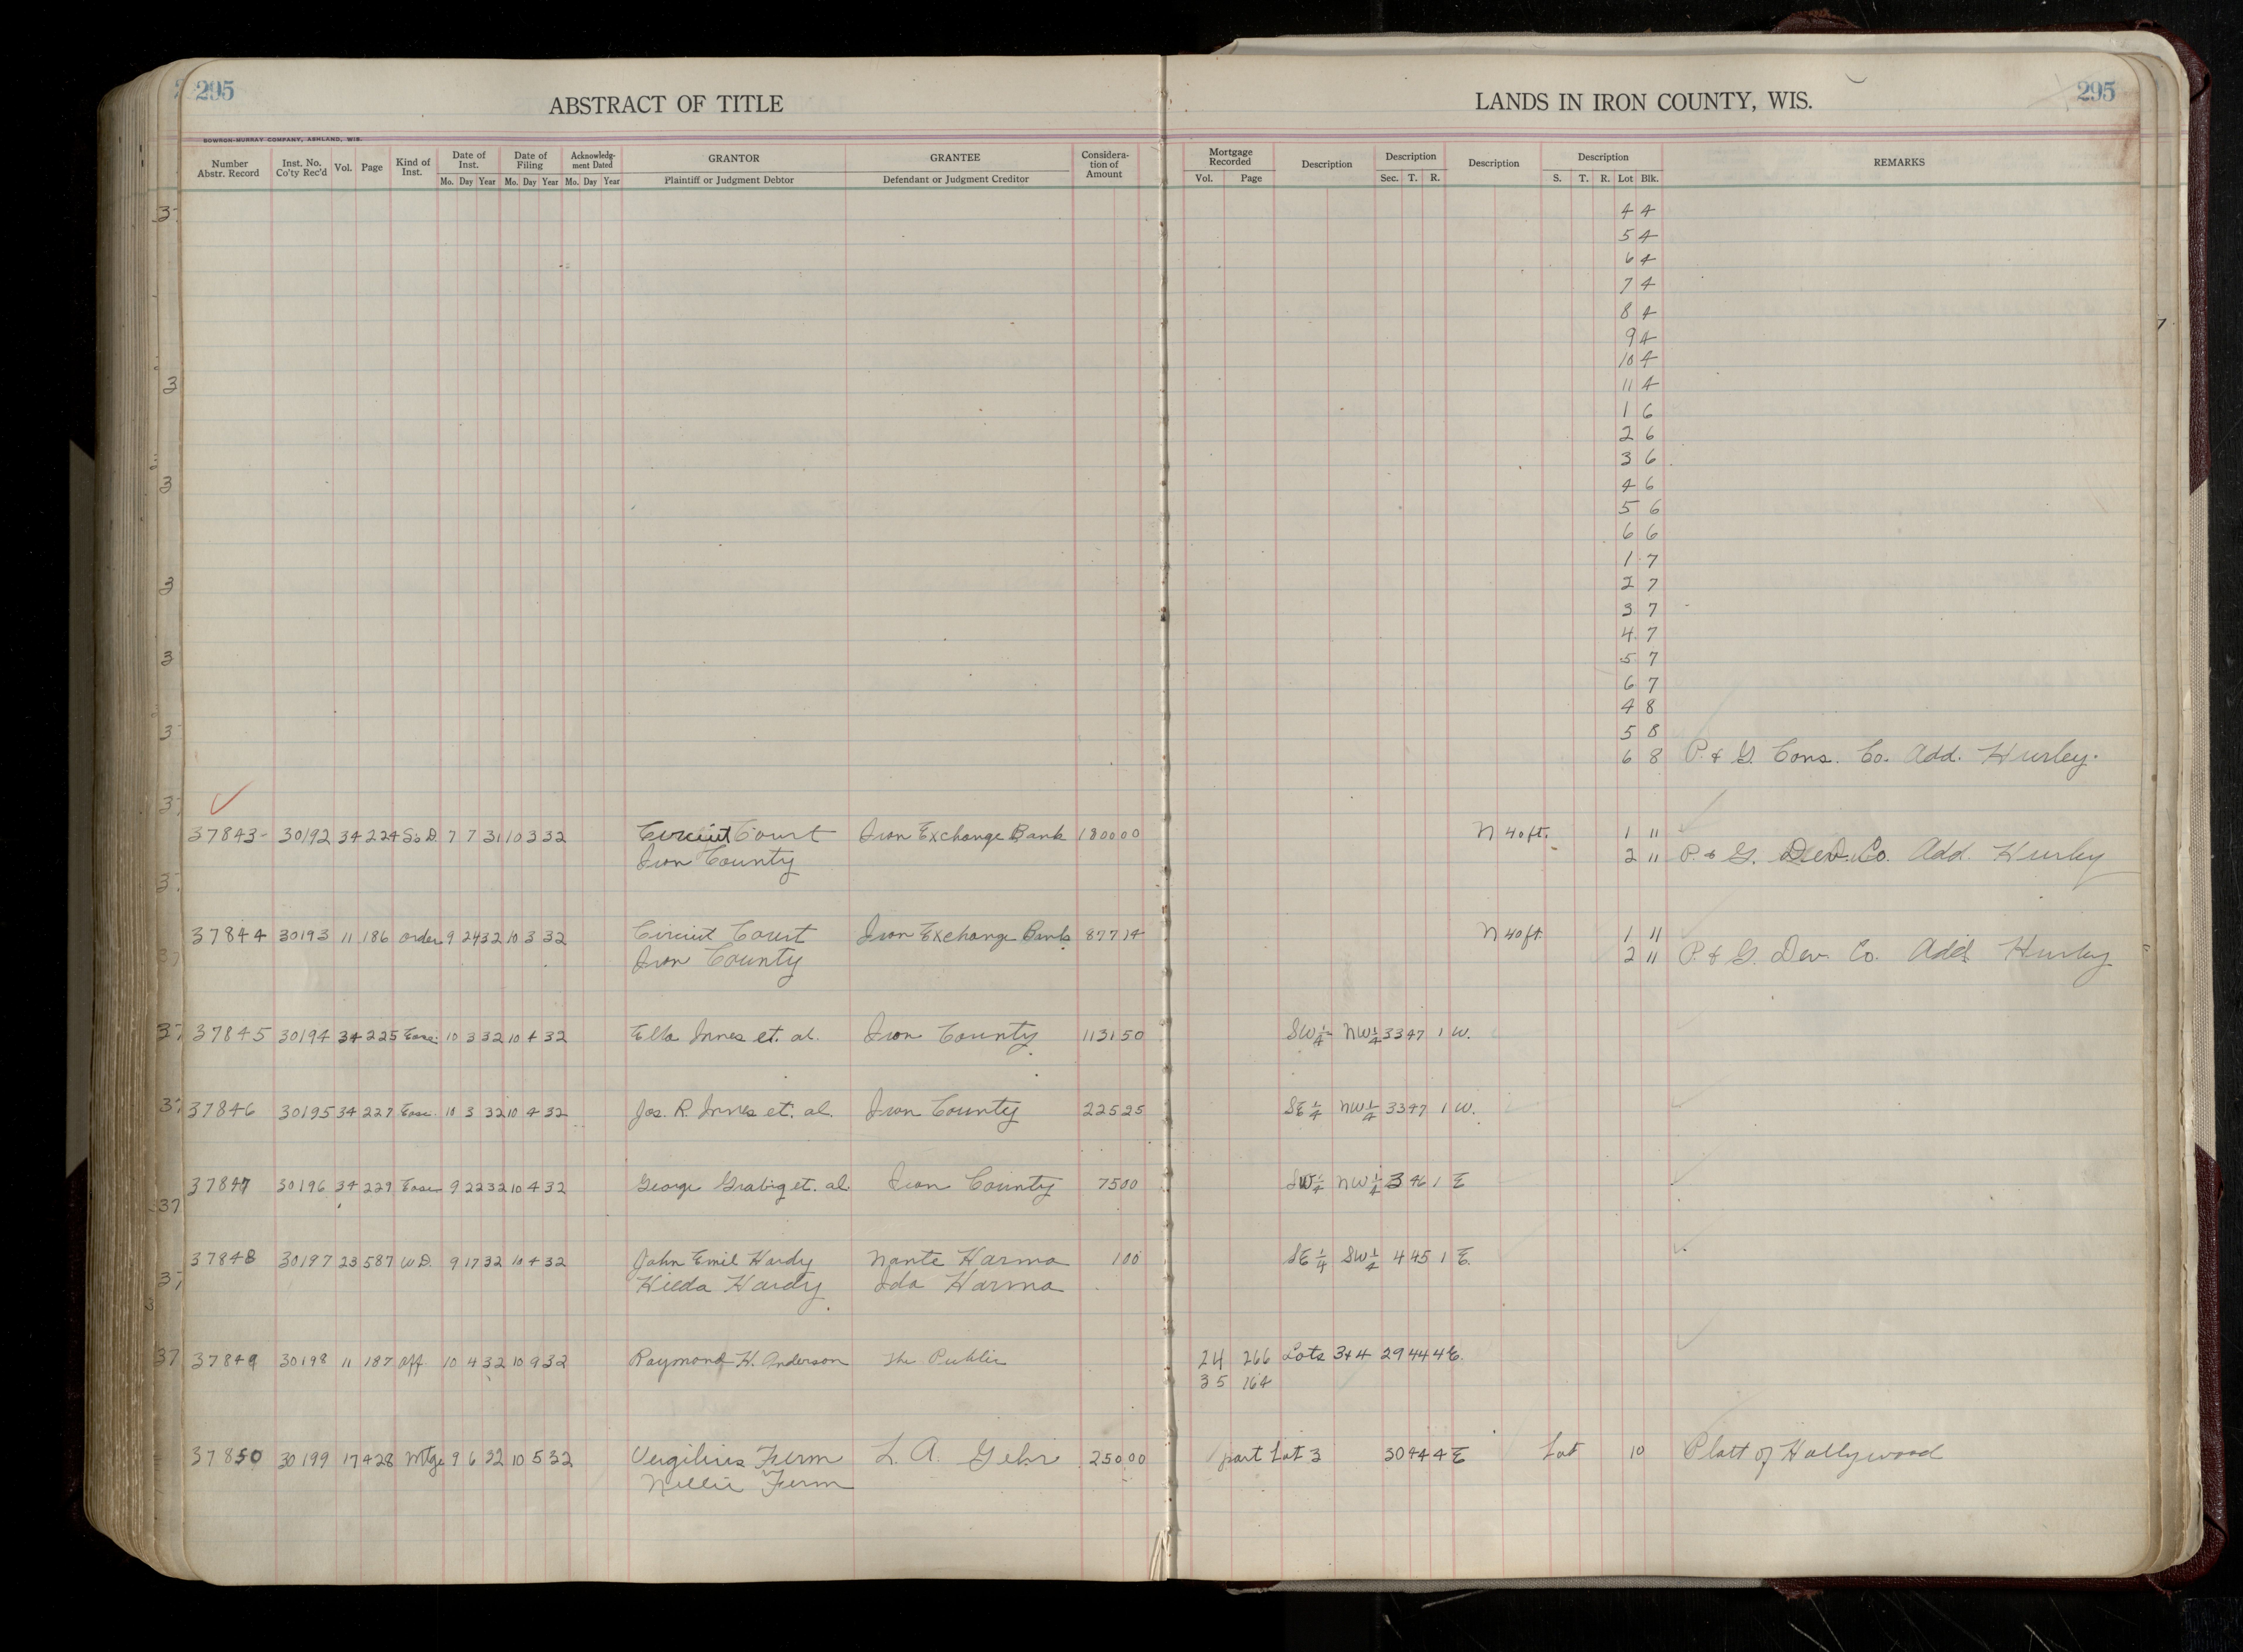 295
ABSTRACT OF TITLE
LANDS IN IRON COUNTY, WIS.
295
BOWRON-MURRAY COMPANY, ASHLAND, WIS.
Number Abstr. Record Inst. No. Co'ty Rec'd Vol. Page Kind of Inst. Date of Inst. Date of Filing Acknowledg-ment Dated GRANTOR GRANTEE Considera-tion of Amount Mortgage Recorded Description Description Description Description REMARKS
Mo. Day Year Mo. Day Year Mo. Day Year Plaintiff or Judgment Debtor Defendant or Judgment Creditor Vol. Page Sec. T. R. S. T. R. Lot Blk.
4 4
5 4
6 4
7 4
8 4
9 4
10 4
11 4
1 6
2 6
3 6
4 6
5 6
6 6
1 7
2 7
3 7
4 7
5 7
6 7
4 8
5 8
6 8 P. & G. Cons. Co. Add. Hurley.
37843 30192 34 224 S. D. 7 7 31 10 3 32 Circuit Court Iron Exchange Bank 1800 00 N 40 ft. 1 11
Iron County 2 11 P. & G. Dev. Co. Add. Hurley
37844 30193 11 186 Order 9 24 32 10 3 32 Circuit Court Iron Exchange Bank 877 14 N 40 ft. 1 11
Iron County 2 11 P. & G. Dev. Co. Add. Hurley
37845 30194 34 225 Ease. 10 3 32 10 4 32 Ella Innes et. al. Iron County 1131 50 SW 1/4 NW 1/4 33 47 1 W.
37846 30195 34 227 Ease. 10 3 32 10 4 32 Jos. R. Innes et. al. Iron County 225 25 SE 1/4 NW 1/4 33 47 1 W.
37847 30196 34 229 Ease 9 22 32 10 4 32 George Grabig et. al. Iron County 75 00 SW 1/4 NW 1/4 3 46 1 E
37848 30197 23 587 W D. 9 17 32 10 4 32 John Emil Hardy Nante Harma 1 00 SE 1/4 SW 1/4 4 45 1 E.
Hilda Hardy Ida Harma
37849 30198 11 187 Aff. 10 4 32 10 9 32 Raymond H. Anderson The Public 24 266 Lots 3+4 29 44 4 E.
35 164
37850 30199 17 428 Mtge 9 6 32 10 5 32 Vergilius Ferm L. A. Gehr 250 00 part Lot 3 30 44 4 E Lot 10 Platt of Hollywood
Nellie Ferm